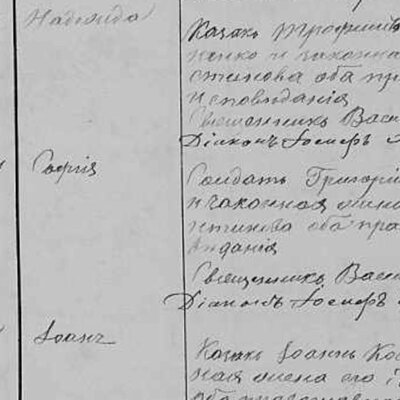 Надежда
Казакъ Трофимъ
ненко и законна
стинова оба пр
исповѣданія
Священникъ Васи
Діаконъ Іосифъ
Софія
Солдатъ Григорій
и законная жена
стинова оба пра
вѣданія
Священникъ Васи
Діаконъ Іосифъ
Іоаннъ
Казакъ Іоаннъ Ко
ная жена его
оба православна